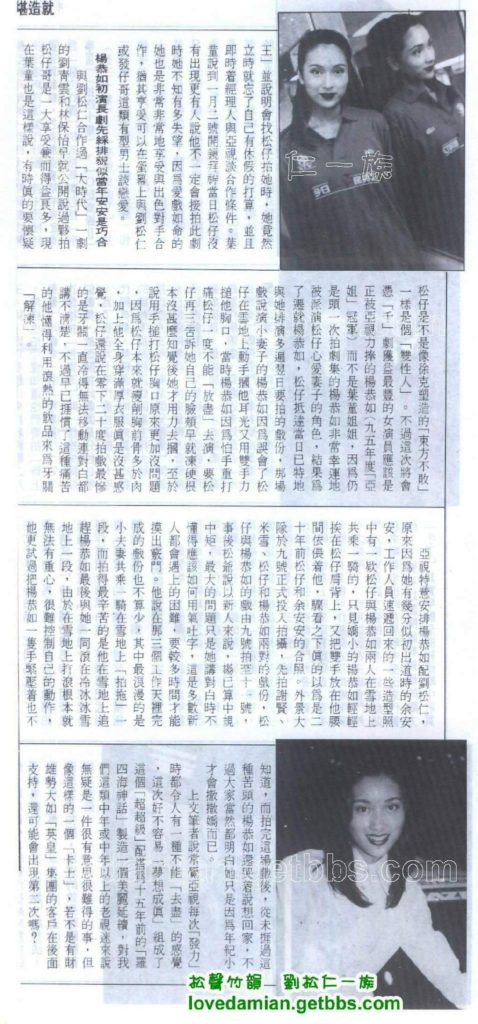 堪造就
王」並說明會找松仔拍她時，她竟然
立時就忘了自己有休假的打算，並且
即時着經理人與亞視談合作條件。葉
童說到一月二號開鏡拜神當日松仔沒
有出現更有人說他不一定會接拍此劇
時她不知有多失望，因爲愛戲如命的
她也是非常非常地享受與出色對手合
作，猶其享受可以在螢幕上與劉松仁
或發仔哥這類有型男士談戀愛。
楊恭如初演長劇先綵排貌似當年安安是巧合
與劉松仁合作過「大時代」一劇
的劉青雲和林保怡早就公開說過夥拍
松仔哥是一大享受兼而得益良多，現
在葉童也是這樣說，有時眞的要懷疑
松仔是不是像徐克塑造的「東方不敗」
一樣是個「雙性人」。不過這次將會
憑「　」劇獲益最豐的女演員應該是
正被亞視力捧的楊恭如（九五年度「亞
姐」冠軍）而不是葉童姐姐，因爲仍
是頭一次拍劇集的楊恭如非常幸運地
被派演松仔心愛妻子的角色，結果爲
了遷就楊恭如，松仔抵達當日已特地
與她排演多遍翌日要拍的戲份，那場
戲說演小妻子的楊恭如因爲誤會了松
仔在雪地上動手摑他耳光又用雙手力
搥他胸口，當時楊恭如因爲怕手重打
痛松仔一度不能「放盡」去演，要松
仔再三告訴她自己的臉頰早就凍硬根
本沒甚麼知覺後她才用力去摑，至於
說用手搥打松仔胸口原來更加沒問題
，因爲松仔本來就瘦削胸前骨多於肉
，加上他全身穿滿厚衣服眞是沒甚感
覺，松仔還說在零下二十度拍戲最慘
的是牙關一直冷得無法移動連對白都
講不淸楚，不過早已捱慣了這種痛苦
的他懂得利用滾熱的飮品來爲牙關
「解凍」。
亞視特意安排楊恭如配劉松仁，
原來因爲她有幾分似初出道時的余安
安，工作人員速遞回來的一些造型照
中有一欵松仔與楊恭如兩人在雪地上
共乘一騎的，只見嬌小的楊恭如輕輕
挨在松仔肩背上，又把雙手放在他腰
間依偎着他，驟看之下眞的以爲是二
十年前松仔和余安安的合照。外景大
隊於九號正式投入拍攝，先拍謝賢、
米雪、松仔和楊恭如兩對的戲份，松
仔與楊恭如的戲由九號拍至十一號，
事後松爺說以新人來說，楊已算中規
中矩，最大的問題只是她講對白時不
懂得應該如何用氣吐字，這是多數新
人都會遇上的困難，要較多時間才能
摸出竅門。他說在那三個工作天裡完
成的戲份也不算少，其中最浪漫的是
小夫妻共乘一騎在雪地上「拍拖」一
段，而拍得最辛苦的是他在雪地上追
趕楊恭如最後與她一同滾在冷冰冰雪
地上一段，由於在雪地上打滾根本就
無法有重心，很難控制自己的動作，
他更試過把楊恭如一隻手緊壓着也不
知道，而拍完這場戲後，從未捱過這
種苦頭的楊恭如邊哭着說想回家，不
過大家當然都明白她只是因爲年紀小
才會撒撒嬌而已。
上文筆者說常覺亞視每次「發力」
時都令人有一種不能「去盡」的感覺
，這次好不容易「夢想成眞」組成了
這個「超超級」配搭爲十五年前的「羅
四海神話」製造一個美麗延續，對我
們這類中年或中年以上的老視迷來說
無疑是一件很有意思很難得的事，但
像這樣的一個「卡士」，若不是有財
雄勢大如「英皇」集團的客戶在後面
支持，還可能會出現第二次嗎？
仁一族
getbbs.com
松聲竹韻　劉松仁一族
lovedamian.getbbs.com